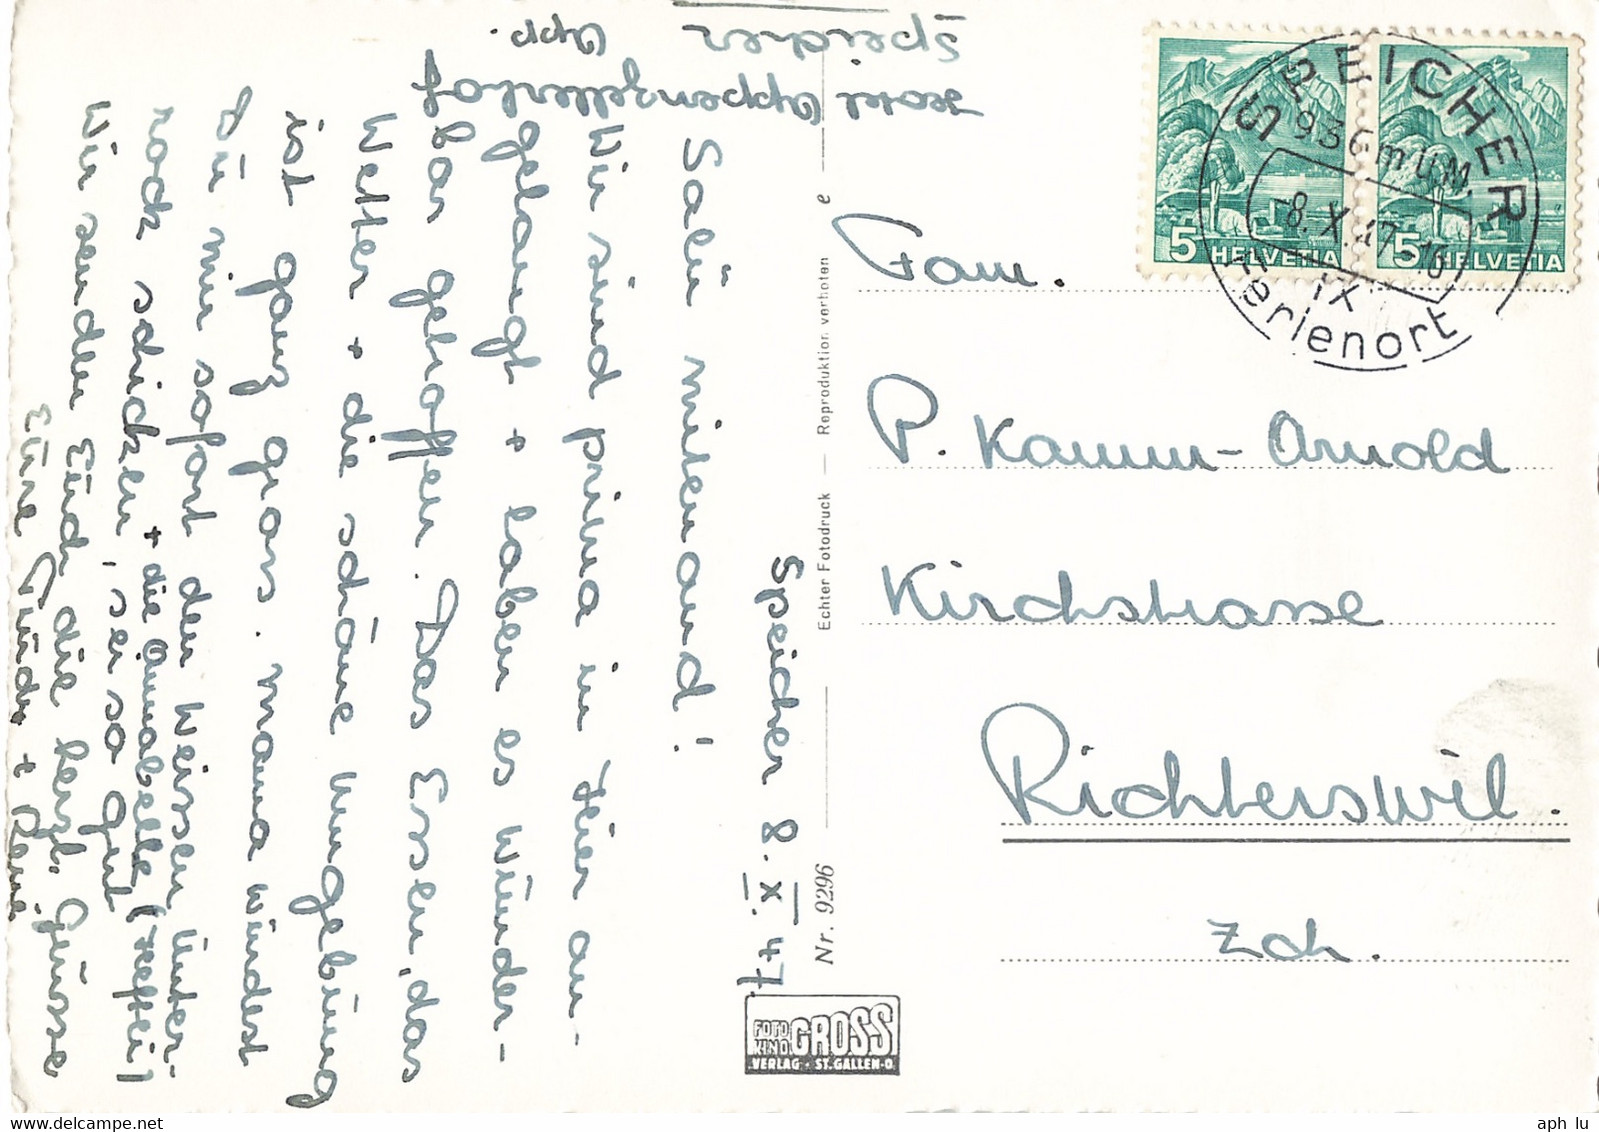 Hotel Appenzellerhof
Speicher App.
Speicher 8. X. 47.
Salü mitenand!
Wir sind prima in hier an-
gelangt + haben es wunder-
bar getroffen. Das Essen, das
Wetter + die schöne Umgebung
ist ganz gross. Mama würdest
Du mir sofort den weissen Unter-
rock schicken, + die Annabelle (Heftli)
sei so gut
Wir senden Euch die herzl. Grüsse
Eure Trudi + René
Fam.
P. Kamm-Arnold
Kirchstrasse
Richterswil.
Zch.
SPEICHER
936 m ü.M.
-8. X. 47.-16
IX
Ferienort
5 HELVETIA
5 HELVETIA
Echter Fotodruck — Reproduktion verboten
e
Nr. 9296
FOTO UND GROSS
VERLAG · ST. GALLEN-O.
aph lu